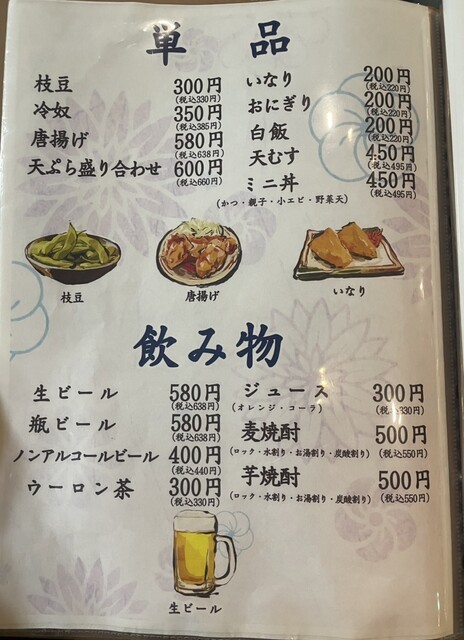 単品
枝豆 300円
(税込330円)
冷奴 350円
(税込385円)
唐揚げ 580円
(税込638円)
天ぷら盛り合わせ 600円
(税込660円)
いなり 200円
(税込220円)
おにぎり 200円
(税込220円)
白飯 200円
(税込220円)
天むす 450円
(税込495円)
ミニ丼 450円
(税込495円)
(かつ・親子・小エビ・野菜天)
枝豆
唐揚げ
いなり
飲み物
生ビール 580円
(税込638円)
瓶ビール 580円
(税込638円)
ノンアルコールビール 400円
(税込440円)
ウーロン茶 300円
(税込330円)
ジュース 300円
(オレンジ・コーラ) (税込330円)
麦焼酎 500円
(ロック・水割り・お湯割り・炭酸割り) (税込550円)
芋焼酎 500円
(ロック・水割り・お湯割り・炭酸割り) (税込550円)
生ビール